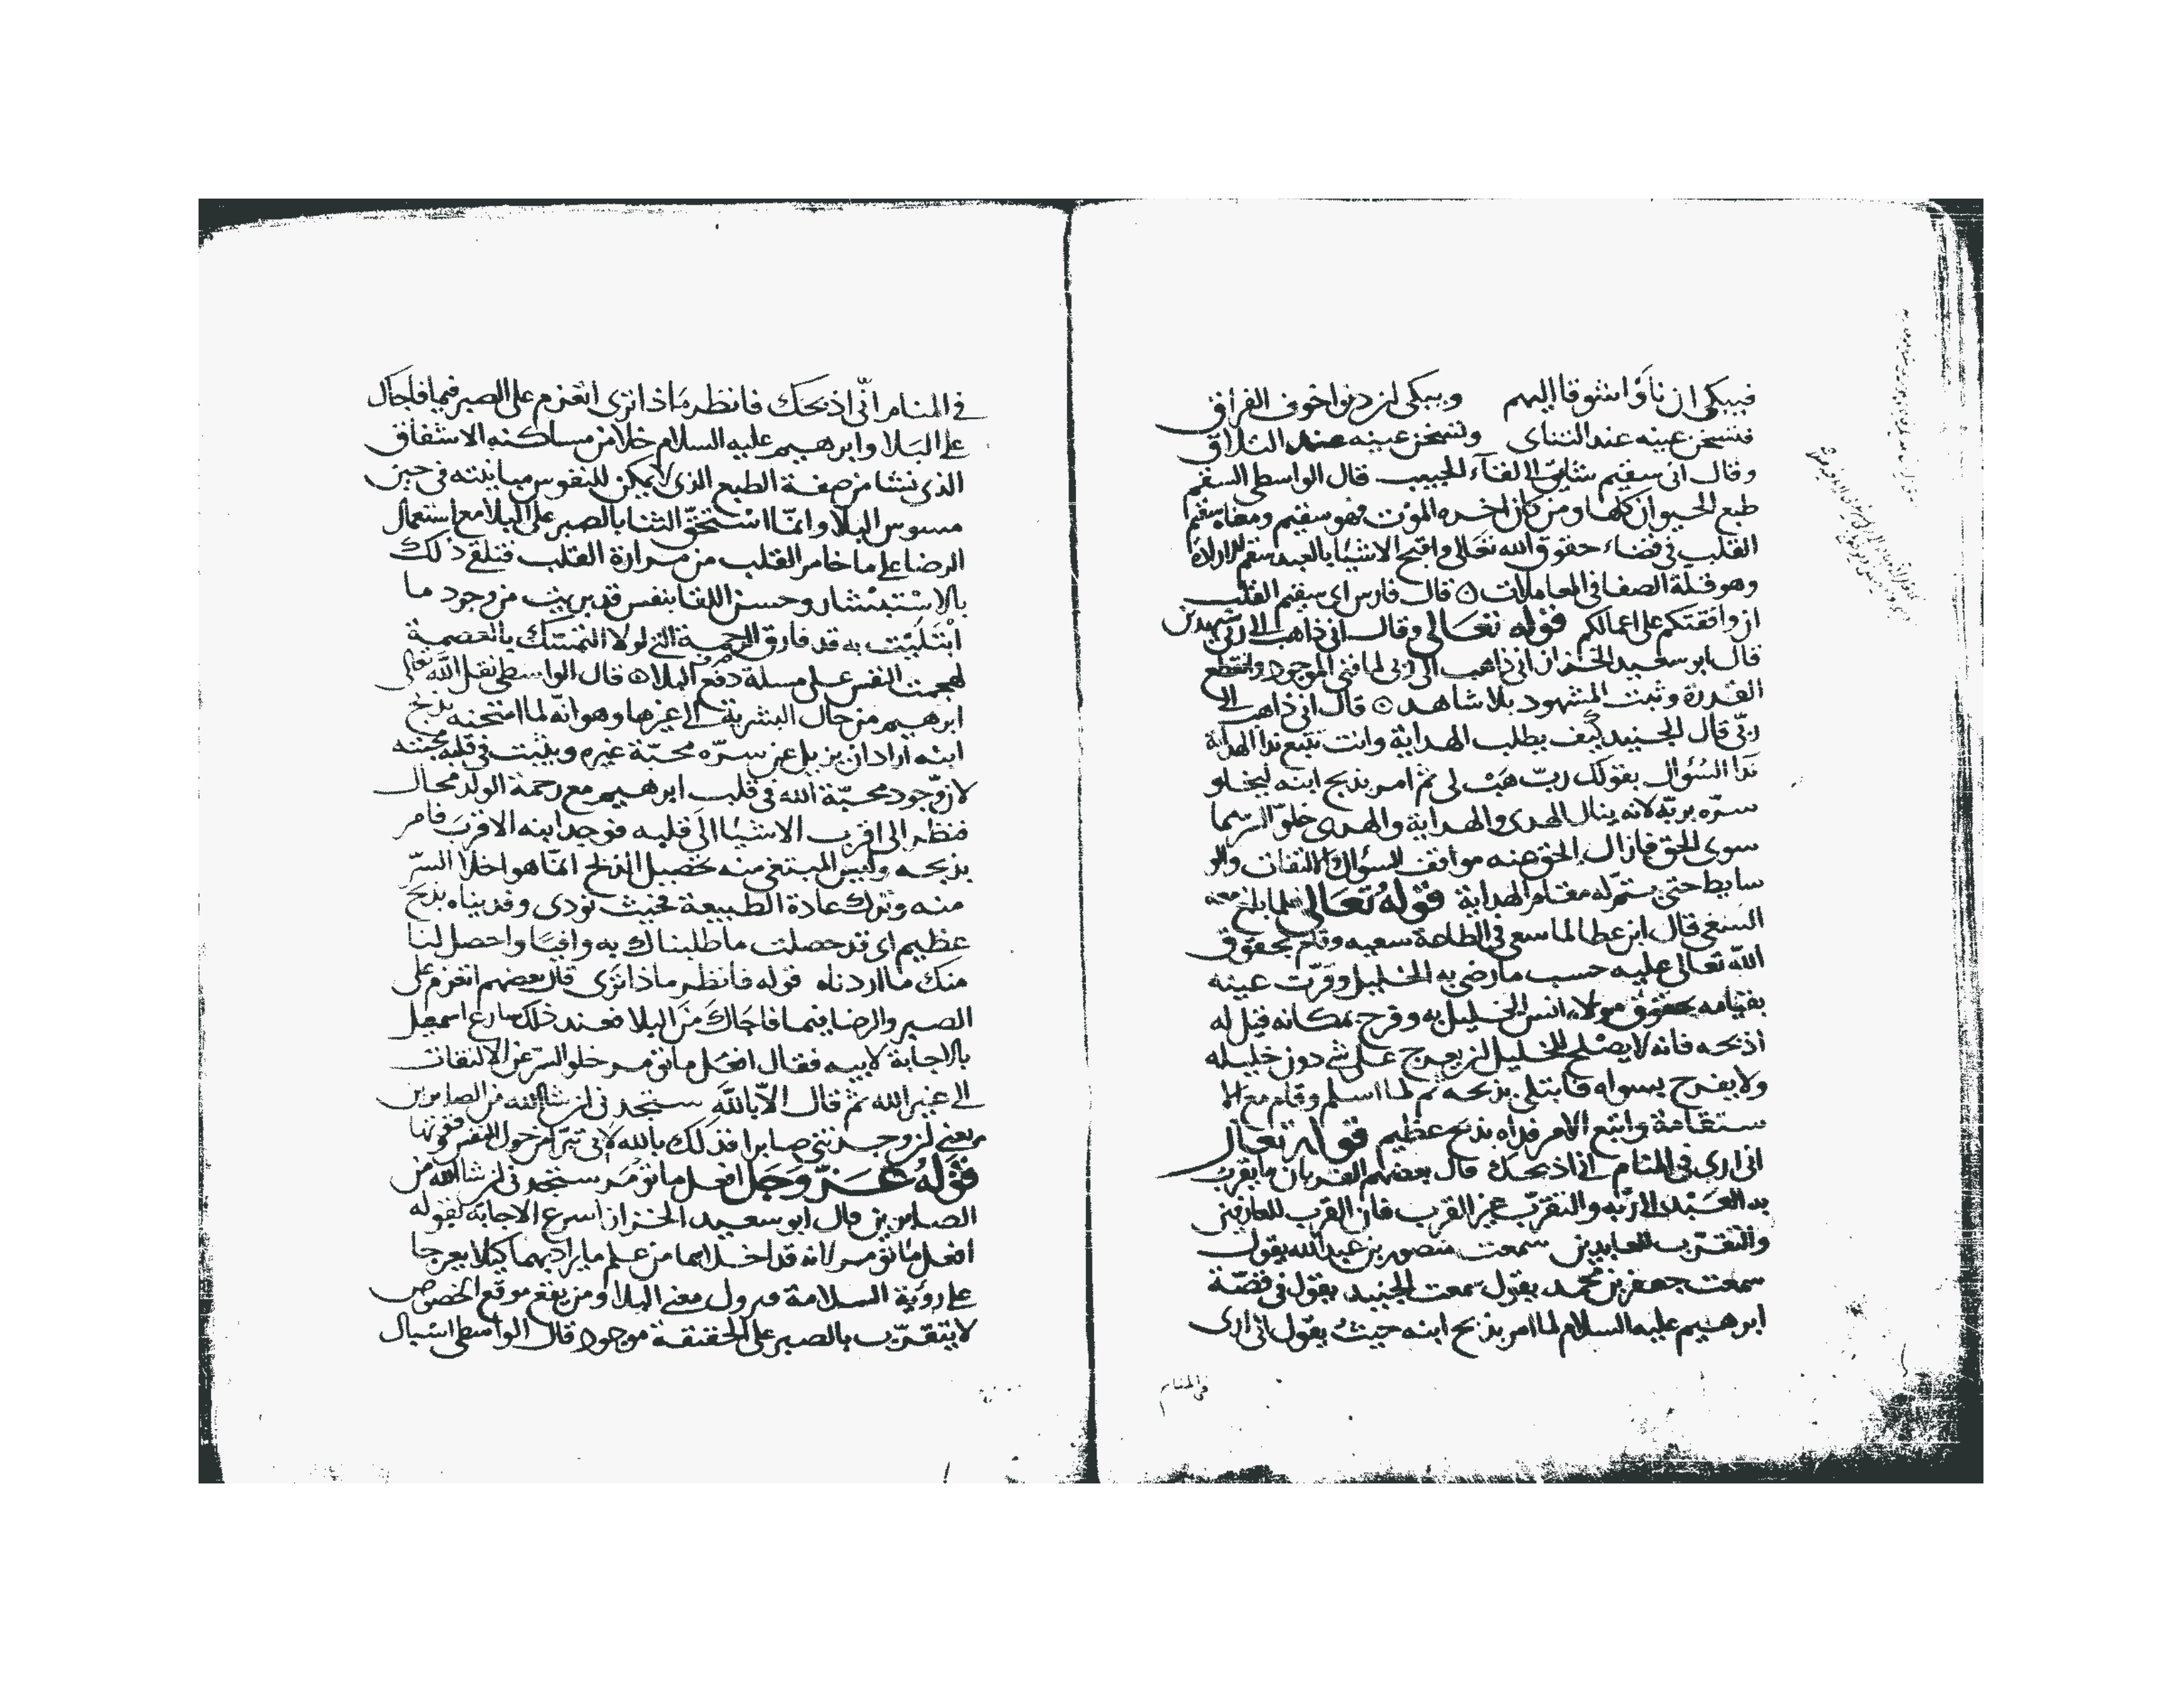 فيبكي ان ناوا شوقا اليهم ويبكي ان دنوا خوف الفراق
فتسخن عينه عند التناي وتسخن عينه عند التلاق
وقال انى سقيم شايق الى لقآء الحبيب قال الواسطي السقم
طبع الحيوان كلها ومن كان اخره الموت فهو سقيم ومعناه سقيم
القلب في قضاء حقوق الله تعالى واقبح الاشيا بالعبد سقم
وهو قلة الصفا في المعاملات ۞ قال فارس اى سقيم القلب
ان وافقتكم على اعمالكم قوله تعالى وقال انى ذاهب الى ربى سيهدين
قال ابو سعيد الخراز انى ذاهب الى ربى لما فنى الموجود وانقطع
القدرة وثبت المشهود بلا شاهد ۞ قال انى ذاهب الى
ربّى قال الجنيد كيف يطلب الهداية وانت تتبع ندا الهداية
ندا السُؤال بقولك ربّ هَبْ لى ثم امر بذبح ابنه ليخلو
سرّه بربّه لانه ينال الهدى والهداية والهدى خلوّ السر مما
سوى الحق فازال الحق عنه مواقف السؤال والالتفات والو
سايط حتى يتم له مقام الهداية قوله تعالى فلما بلغ معه
السعى قال ابن عطا لما سعى في الطاعة سعيه وقام بحقوق
الله تعالى عليه حسب ما رضى به الخليل وقرّت عينه
بقيامه بحقوق مولاه انس الخليل به وفرح بمكانه قيل له
اذبحه فانه لا يصلح للخليل ان يعرج على شى دون خليله
ولا يفرح بسواه فابتلى بذبحه ثم لما اسلم وقام مع الا
ستقامة واتبع الامر فداه بذبح عظيم قوله تعالى
انى ارى في المنام انى اذبحك قال بعضهم القربان ما يقرب
به العَبْد الى ربّه والتقرّب غير القرب فان القرب للعارفين
والتقرّب للعابدين سمعت منصور بن عبد الله يقول
سمعت جعفر بن محمد يقول سمعت الجنيد يقول في قصّة
ابرهيم عليه السلام لما امر بذبح ابنه حيث يقول انى ارى
في المنام
في المنام انّى اذبحك فانظر مَا ذا ترى اتعزم على الصبر فيما فاجاك
على البَلا وابرهيم عليه السلام خلا من مساكنه الاشفاق
الذى نشا من صفة الطبع الذى لا يمكن للنفوس مباينته في حين
مسوس البلا وانمّا استحقّ الثنا بالصبر على البلا مع استعمال
الرضا على ما خامر القلب من مرارة القلب فتلقى ذلك
بالاسْتبشار وحسن اللقا بنفس قد بريت من وجود ما
ابْتَلِيَتْ به قد فارق الرحمة التى لولا التمسّك بالعصمة
لهجمت النفس على مسلة دفع البلا ۞ قال الواسطى نقل اللّه تعالى
ابرهيم من حال البشرية الى غيرها وهو انّه لما امتحنه بذبح
ابنه اراد ان يزيل عن سرّه محبّة غيره ويثبت في قلبه محبته
لان وّجود محبّة الله في قلب ابرهيم مع رحمة الولد محال
فنظر الى اقرب الاشيا الى قلبه فوجد ابنه الاقرب فامر
بذبحه وليس المبتغى منه تحصيل الذبح انمّا هو اخلا السرّ
منه وترك عادة الطبيعة فحيث نودى وفديناه بذبح
عظيم اى قد حصلت ما طلبناك به وافيًا واحصل لنا
منك ما اردناه قوله فانظر ماذا ترى قال بعضهم اتعزم على
الصبر والرضا فيما فاجاكَ منَ البلا فعند ذلك سارع اسمعيل
بالاجابة لابيه فقال افعل ما تؤمر خلو السرّ عن الالتفات
الى غير الله ثم قال الّا بالله ستجدنى ان شا الله من الصابرين
يعنى ان وجدتنى صابرا فذلك بالله لانى تبرّا من حول النفس وقوتها
قوله عزّ وَجَل افعل ما تؤمر ستجدنى ان شا الله من
الصابرين قال ابو سعيد الخراز اسرع الاجابة لقوله
افعل ما تؤمر لانه قد اخلاهما من علم ما يراد بهما كيلا يعرجا
على رؤية السلامة ونزول معنى البلا ومن يقع موقع الخصوص
لا يتقرّب بالصبر على الحقيقة موجود قال الواسطى اسبال